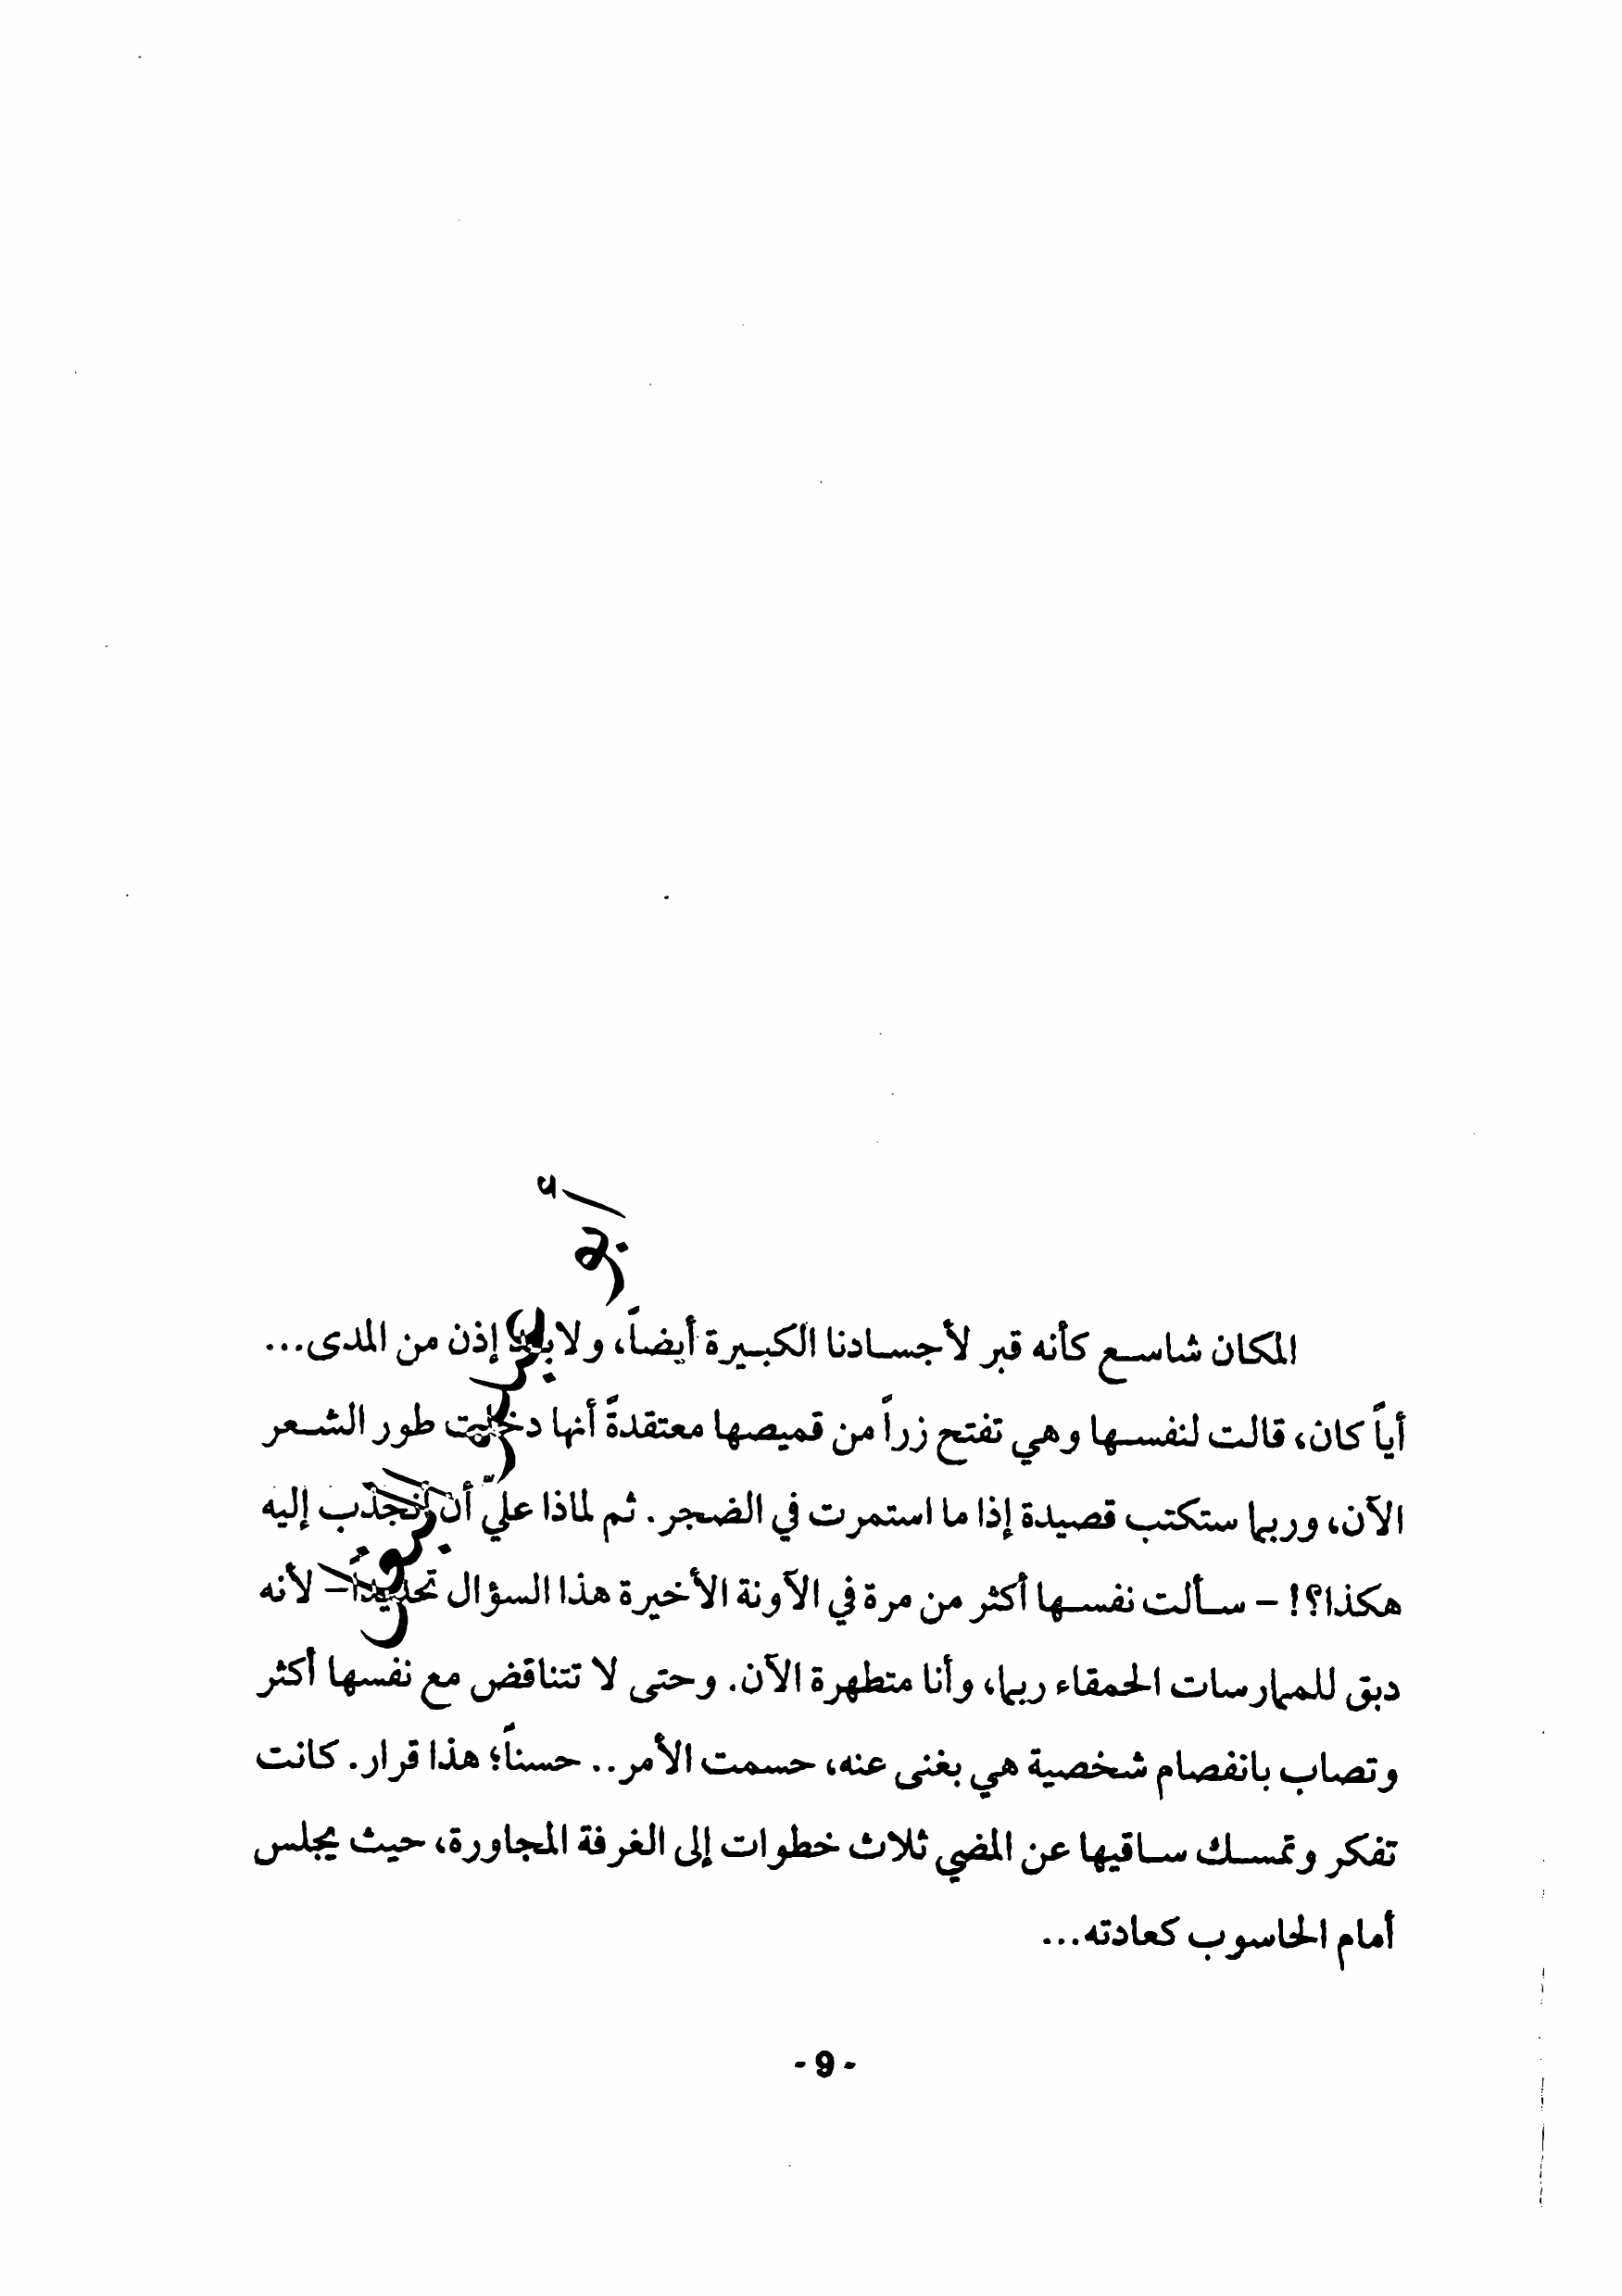 المكان شاسع كأنه قبر لأجسادنا الكبيرة أيضاً، ولابد إذن من المدى...
أياً كان، قالت لنفسها وهي تفتح زراً من قميصها معتقدةً أنها دخلت طور الشعر
الآن، وربما ستكتب قصيدة إذا ما استمرت في الضجر. ثم لماذا عليّ أن أنجذب إليه
هكذا؟! - سألت نفسها أكثر من مرة في الآونة الأخيرة هذا السؤال تحديداً- لأنه
دبق للممارسات الحمقاء ربما، وأنا متطهرة الآن. وحتى لا تتناقض مع نفسها أكثر
وتصاب بانفصام شخصية هي بغنى عنه، حسمت الأمر.. حسناً؛ هذا قرار. كانت
تفكر وتمسك ساقيها عن المضي ثلاث خطوات إلى الغرفة المجاورة، حيث يجلس
أمام الحاسوب كعادته...
- 9 -